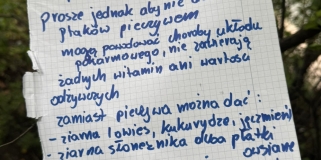 proszę jednak aby nie
ptaków pieczywem
mogą powodować choroby układu
pokarmowego, nie zawierają
żadnych witamin ani wartości
odżywczych
zamiast pieczywa można dać:
- ziarna (owies, kukurydzę, jęczmień)
- ziarna słonecznika albo płatki
owsiane